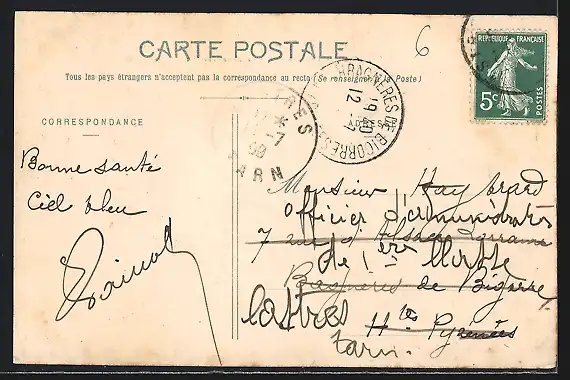 6
CARTE POSTALE
Tous les pays étrangers n'acceptent pas la correspondance au recto (Se renseigner à la Poste)
RÉPUBLIQUE FRANÇAISE
5c
POSTES
CORRESPONDANCE
BAGNÈRES-DE-BIGORRE
12
TARN
Bonne santé
Ciel bleu
Monsieur
Officier d'administration
7 rue d'Alsace Lorraine
de 1ère Classe
Bagnères de Bigorre
Castres
Htes Pyrénées
Tarn.